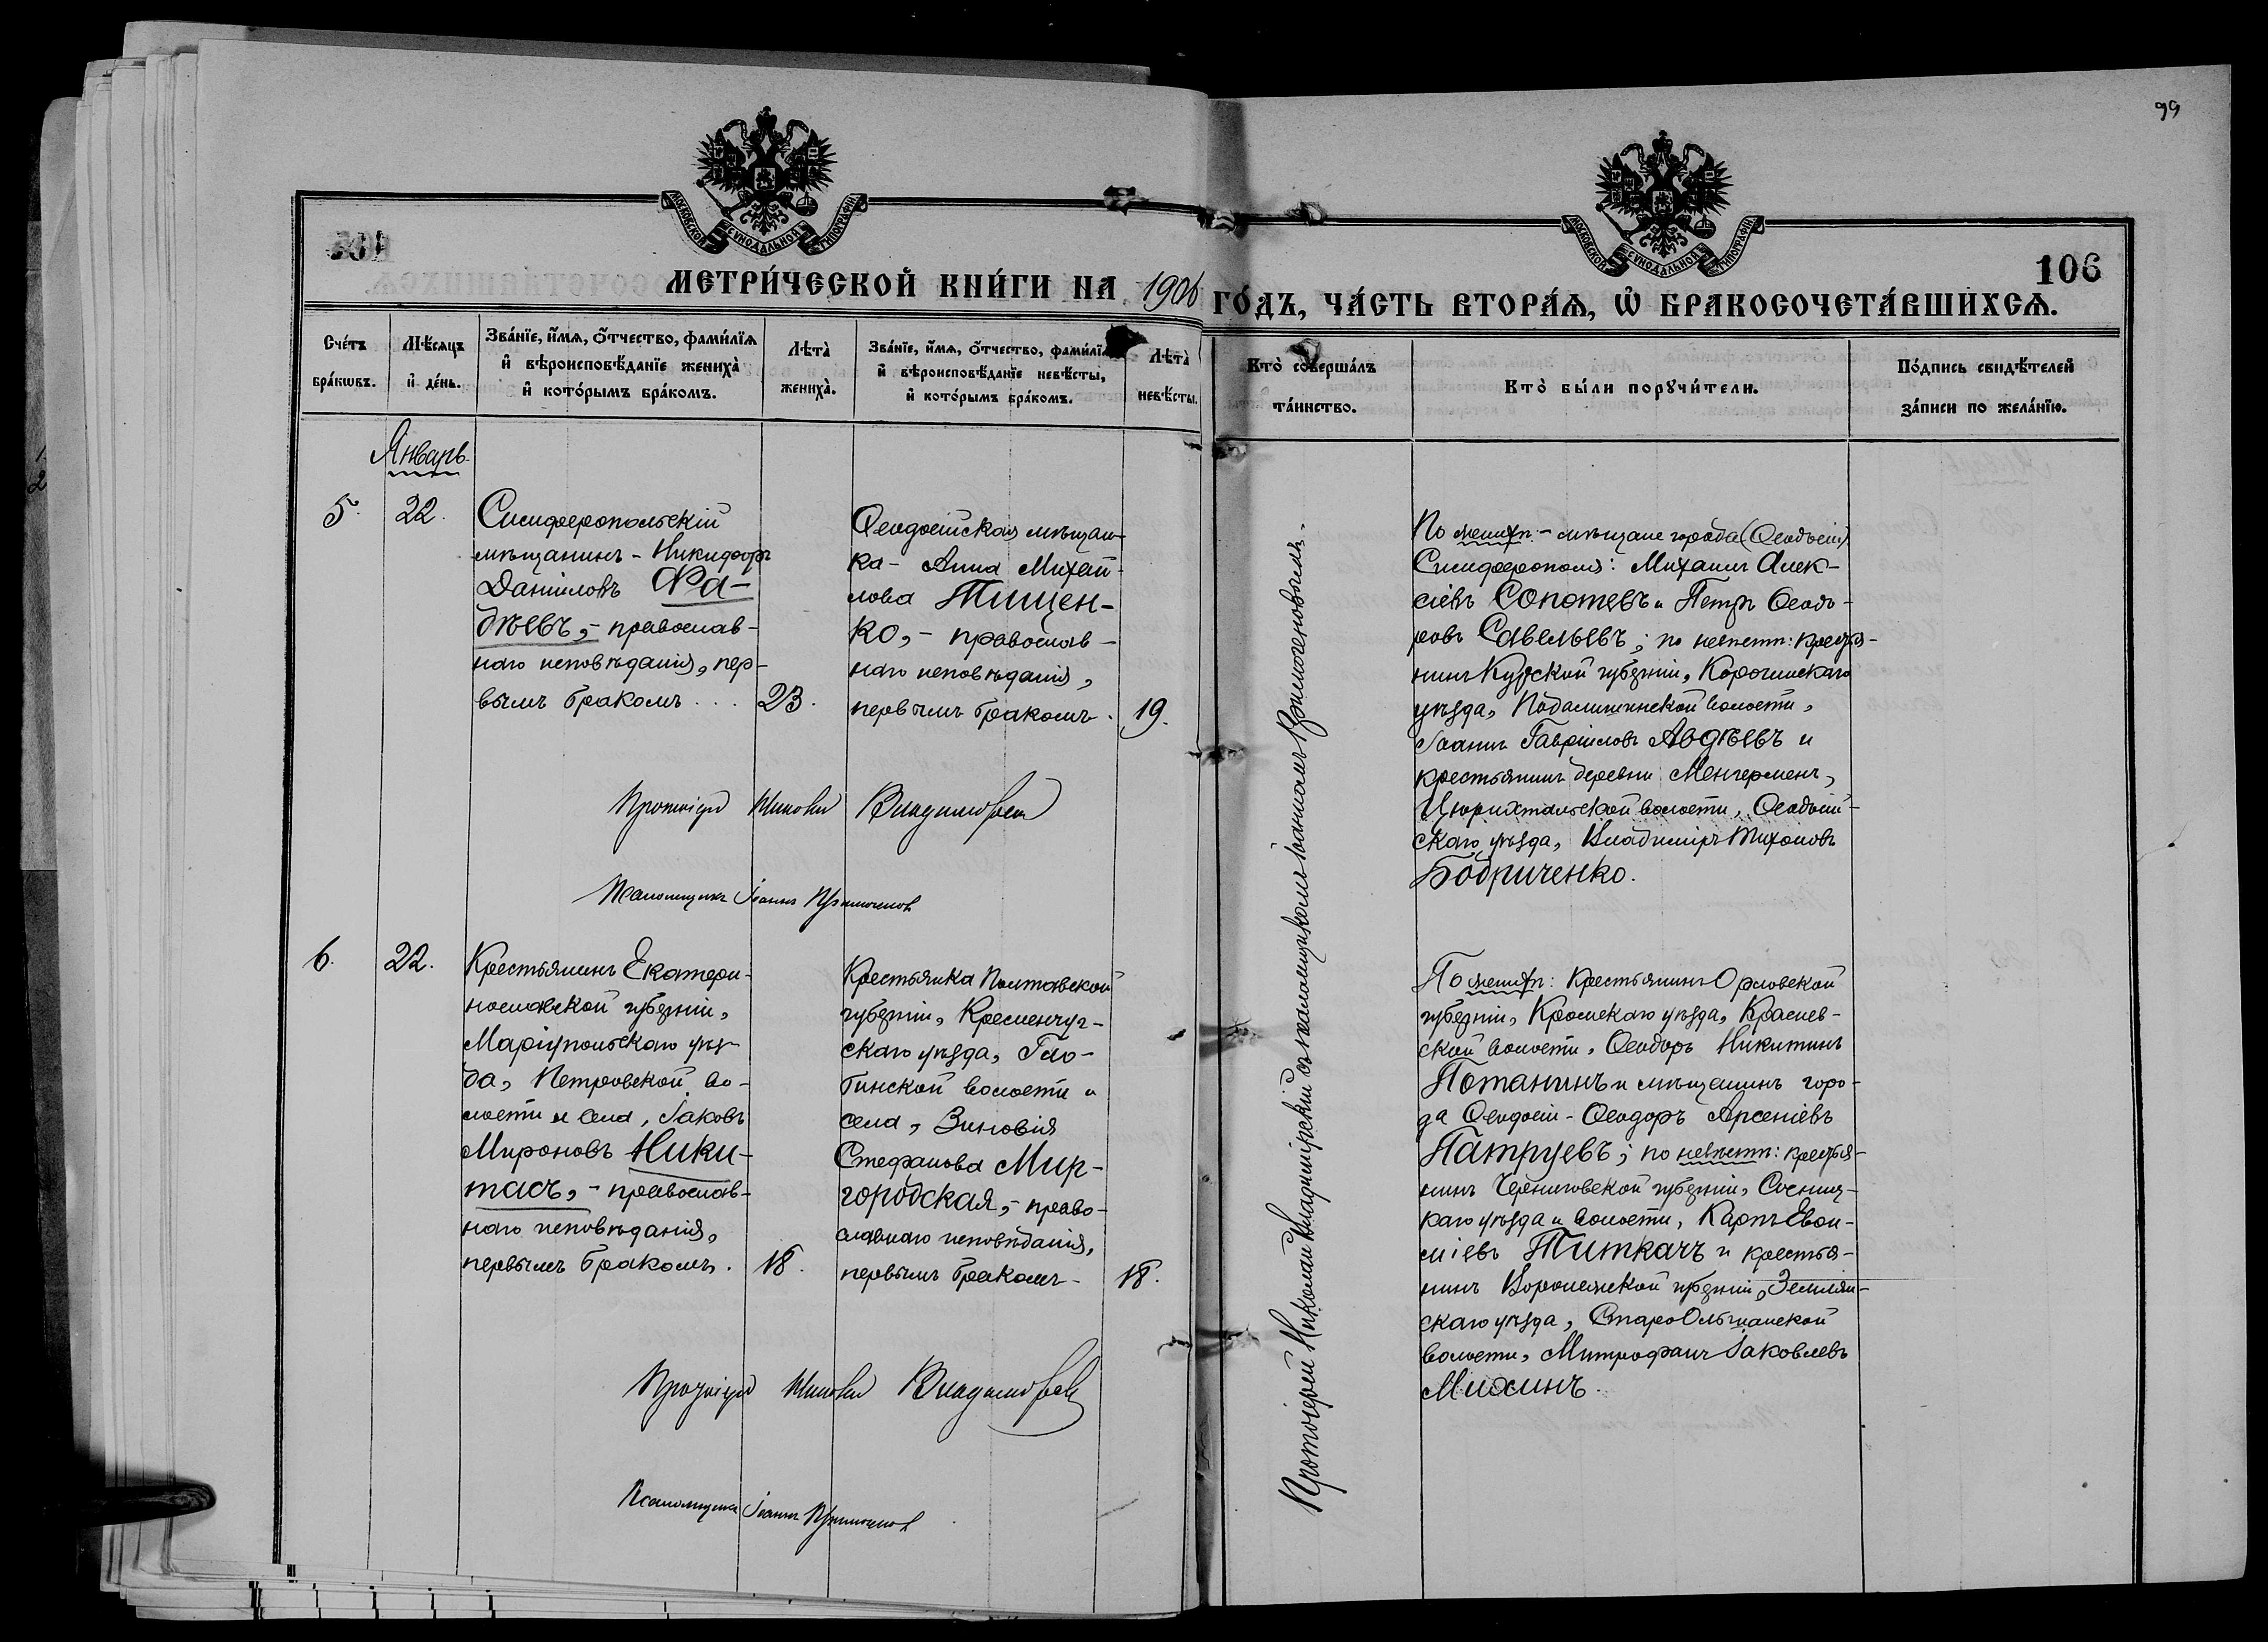 99
МОСКОВСКОЙ СѴНОДАЛЬНОЙ ТИПОГРАФІИ
МОСКОВСКОЙ СѴНОДАЛЬНОЙ ТИПОГРАФІИ
106
МЕТРИ́ЧЕСКОЙ КНИ́ГИ НА 1906 ГО́ДЪ, ЧА́СТЬ ВТОРА́Ѧ, Ѡ҆ БРАКОСОЧЕТА́ВШИХСѦ.
Сче́тъ
бра́кѡвъ.
Мѣ́сяцъ
и҆ де́нь.
Зва́нїе, и҆́мѧ, ѻ҆́тчество, фами́лїѧ
и҆ вѣроисповѣ́данїе жениха̀
и҆ кото́рымъ бра́комъ.
Лѣта̀
жениха̀.
Зва́нїе, и҆́мѧ, ѻ҆́тчество, фами́лїѧ
и҆ вѣроисповѣ́данїе невѣ́сты,
и҆ кото́рымъ бра́комъ.
Лѣта̀
невѣ́сты.
Кто̀ соверша́лъ
та́инство.
Кто̀ бы́ли порꙋчи́тели.
По́дпись свидѣ́телей
за́писи по жела́нїю.
Январь.
5.
22.
Симферопольскій
мѣщанинъ - Никифоръ
Даніиловъ Фа-
дѣевъ, - православ-
наго исповѣданія, пер-
вымъ бракомъ . . .
23.
Ѳеодосійская мѣщан-
ка - Анна Михай-
лова Тищен-
ко, - православ-
наго исповѣданія,
первымъ бракомъ.
19.
Протоіерей Николай Владимірскій съ псаломщикомъ Іоанномъ Примогеновымъ.
По женихѣ: - мѣщане города (Ѳеодосіи)
Симферополя: Михаилъ Алек-
сіевъ Сопотевъ и Петръ Ѳеодо-
ровъ Савельевъ; по невѣстѣ: крестья-
нинъ Курской губерніи, Корочинскаго
уѣзда, волости,
Іоаннъ Гавріиловъ Авдѣевъ и
крестьянинъ деревни Менгерменъ,
Цюрихтальской волости, Ѳеодосій-
скаго уѣзда, Владиміръ Тихоновъ
Бодриченко.
Протоіерей Николай Владимірскій
Псаломщикъ Іоаннъ Примогеновъ
6.
22.
Крестьянинъ Екатери-
нославской губерніи,
Маріупольскаго уѣз-
да, Петровской во-
лости и села, Іаковъ
Мироновъ Ники-
тасъ, - православ-
наго исповѣданія,
первымъ бракомъ.
18.
Крестьянка Полтавской
губерніи, Кременчуг-
скаго уѣзда, Гло-
бинской волости и
села, Зиновія
Стефанова Мир-
городская, - право-
славнаго исповѣданія,
первымъ бракомъ -
18.
По женихѣ: крестьянинъ Орловской
губерніи, Кромскаго уѣзда,
волости, Ѳеодоръ Никитинъ
Потанинъ и мѣщанинъ горо-
да Ѳеодосіи - Ѳеодоръ Арсеніевъ
Патруевъ; по невѣстѣ: крестья-
нинъ Черниговской губерніи, Сосниц-
каго уѣзда и волости, Карпъ Евѳи-
міевъ Титкачъ и крестья-
нинъ Воронежской губерніи, Землян-
скаго уѣзда, СтароОльшанской
волости, Митрофанъ Іаковлевъ
Михинъ.
Протоіерей Николай Владимірскій
Псаломщикъ Іоаннъ Примогеновъ